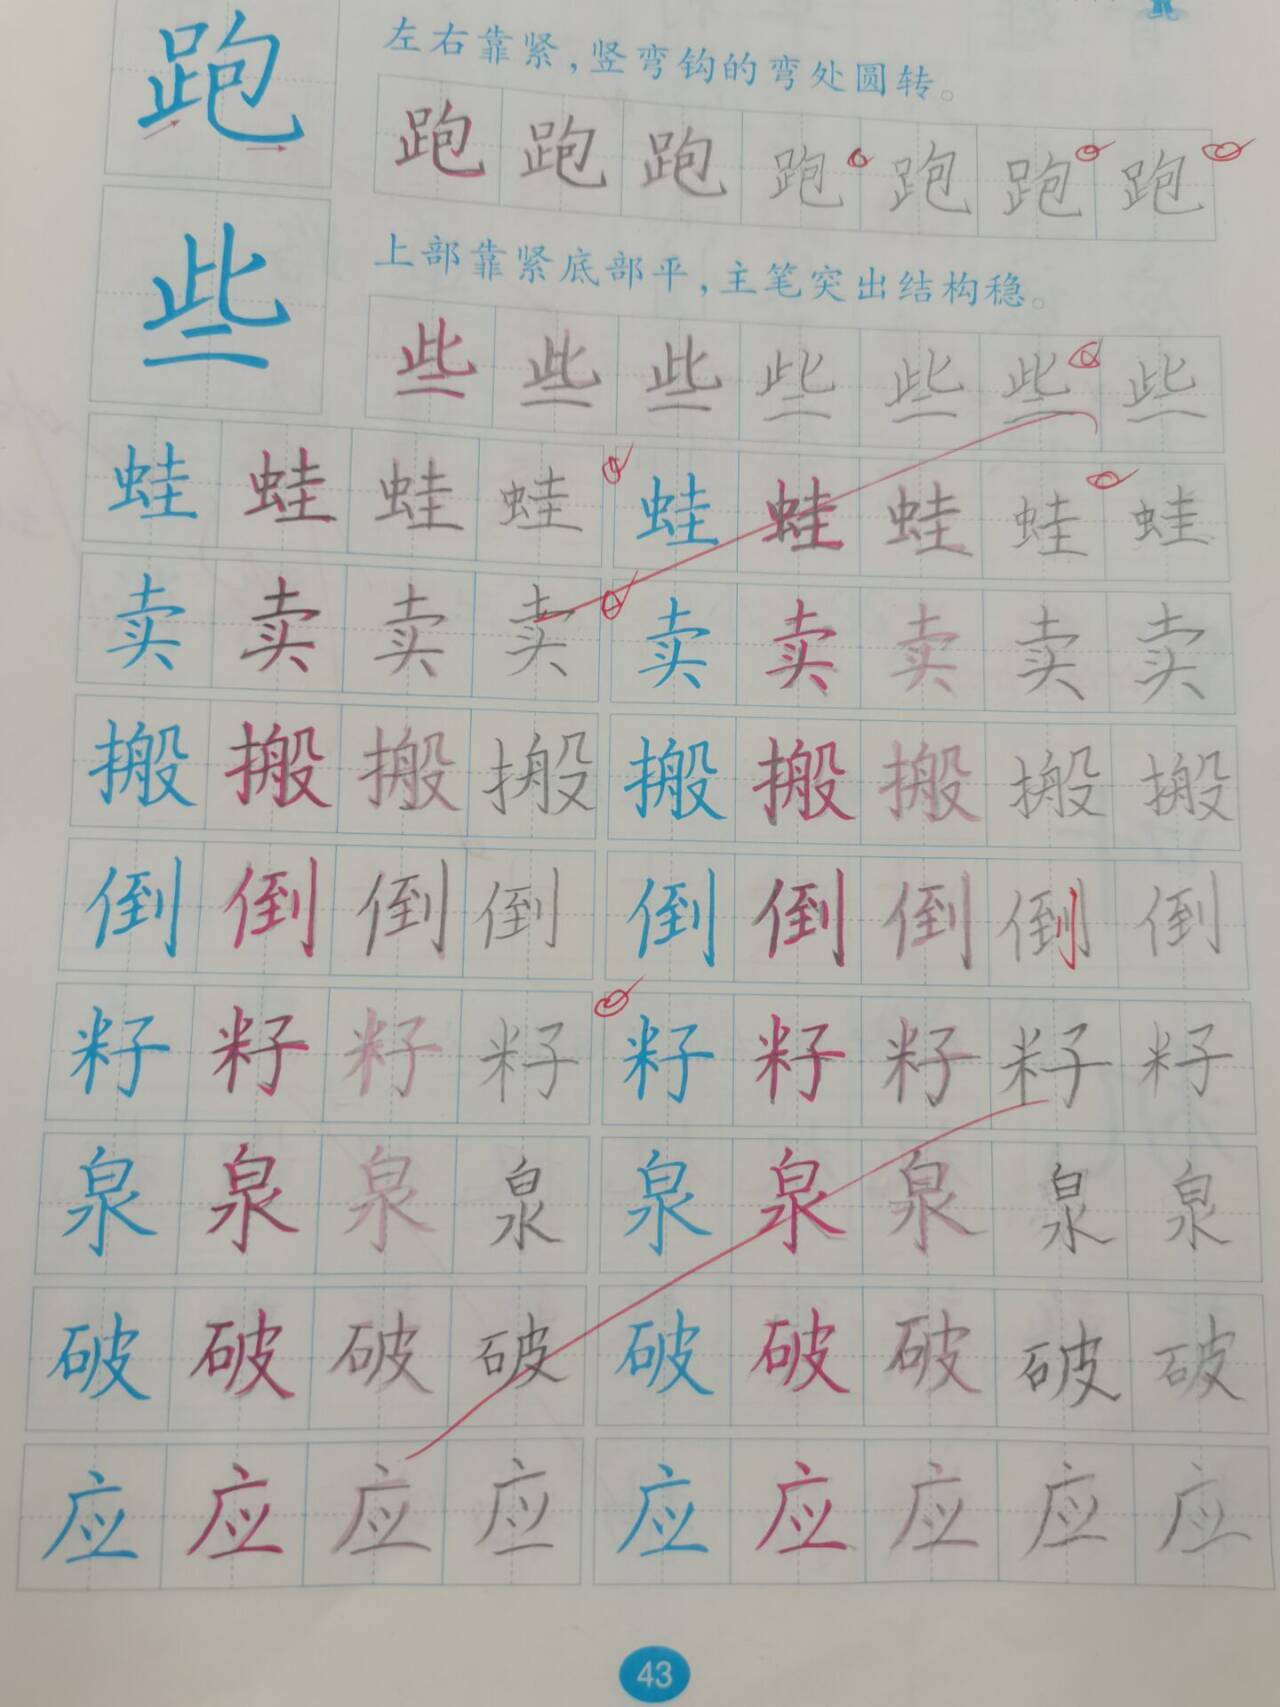 跑 左右靠紧,竖弯钩的弯处圆转。
跑 跑 跑 跑 跑 跑 跑
些 上部靠紧底部平,主笔突出结构稳。
些 些 些 些 些 些 些
蛙 蛙 蛙 蛙 蛙 蛙 蛙 蛙 蛙
卖 卖 卖 卖 卖 卖 卖 卖 卖
搬 搬 搬 搬 搬 搬 搬 搬 搬
倒 倒 倒 倒 倒 倒 倒 倒 倒
籽 籽 籽 籽 籽 籽 籽 籽 籽
泉 泉 泉 泉 泉 泉 泉 泉 泉
破 破 破 破 破 破 破 破 破
应 应 应 应 应 应 应 应 应
43